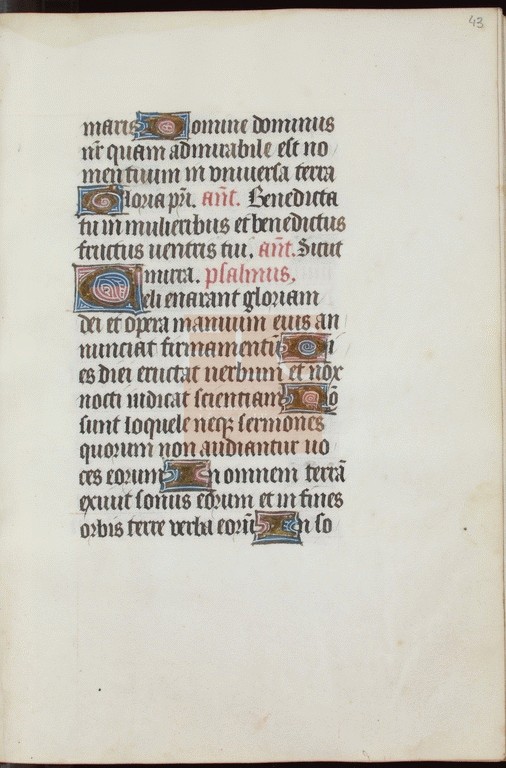 43
maris Domine dominus
nr̃ quam admirabile est no
men tuum in vniuersa terra
Gloria pri. ant̃. Benedicta
tu in mulieribus et benedictus
fructus uentris tui. ant̃. Sicut
mirra. psalmus.
Celi enarant gloriam
dei et opera manuum eius an
nunciat firmamentũ Di
es diei eructat uerbum et nox
nocti indicat scientiam Nõ
sunt loquele neqꝫ sermones
quorum non audiantur uo
ces eorum In omnem terrã
exiuit sonus eorum et in fines
orbis terre verba eorũ In so